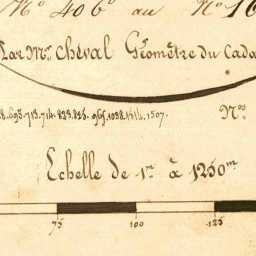 N.º 406º au N.º 16
Par Mr. Cheval Géomêtre du Cada
8.693.713.714.823.825.965.1038.1414.1507. Nos
Echelle de 1m à 1250m
75 100 125